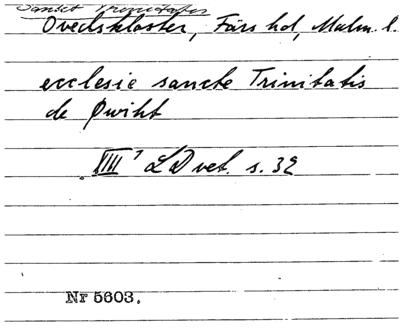 Sanctæ Trinitatis
Ovedskloster, Färs hd, Malm. l.
ecclesie sancte Trinitatis
de Øwiht
XIII¹ LD vet. s. 32
Nr 5603.